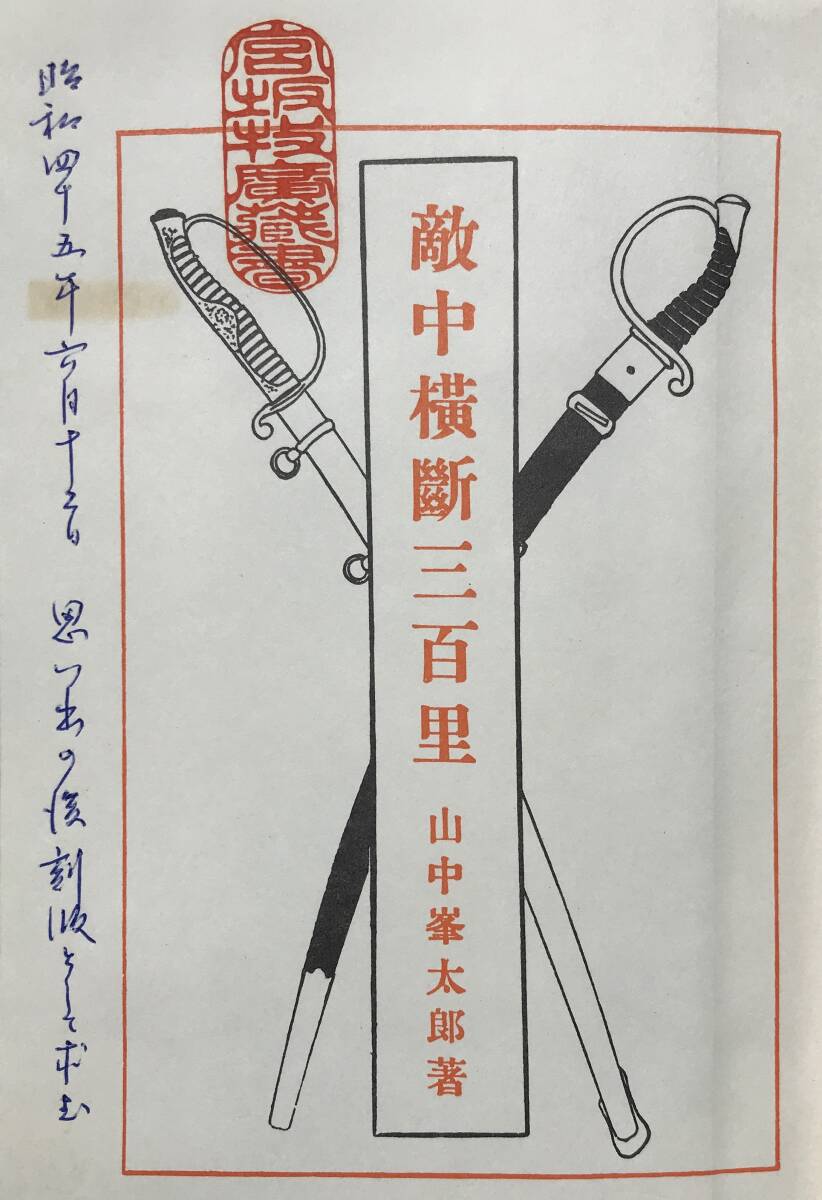 敵中橫斷三百里
山中峯太郎著
宮坂牧廣藏書
昭和四十五年六月十二日 思い出の復刻版として求む